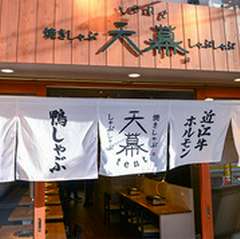 焼きしゃぶ
天幕
しゃぶしゃぶ
鴨しゃぶ
天幕
焼きしゃぶ
しゃぶしゃぶ
tent
近江牛
ホルモン